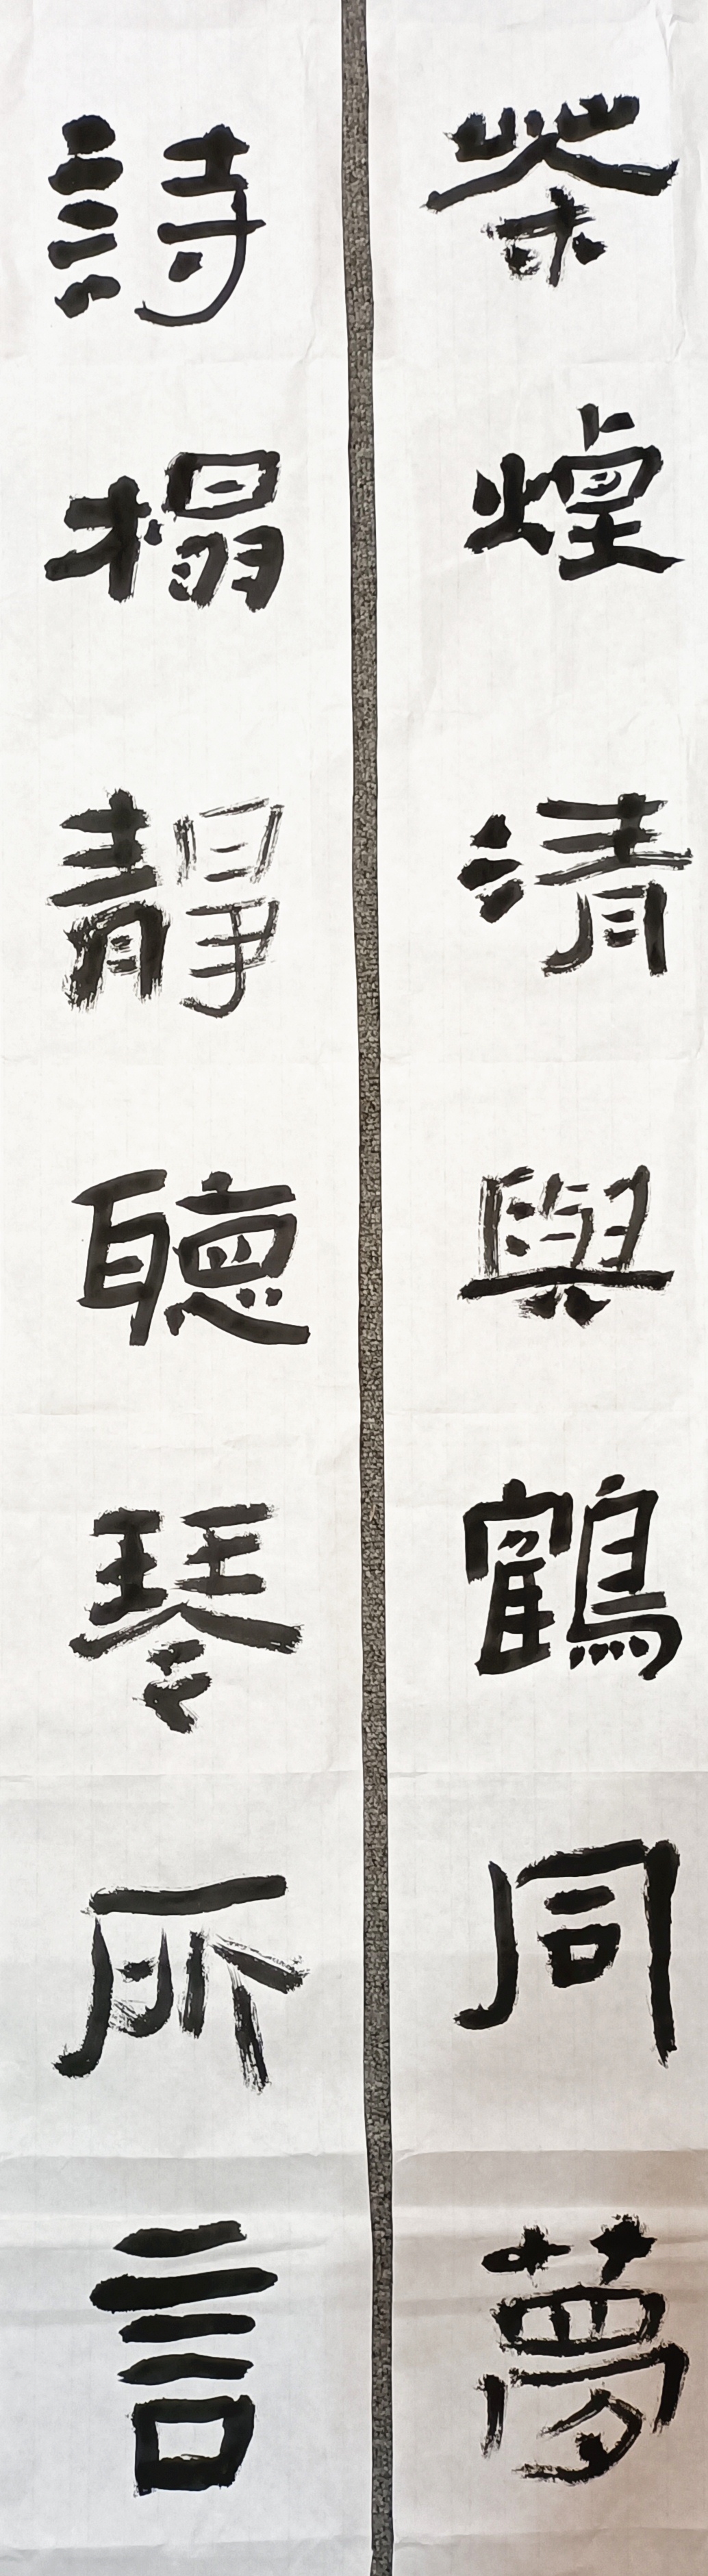 茶煌清與鶴同夢
詩榻靜聽琴所言